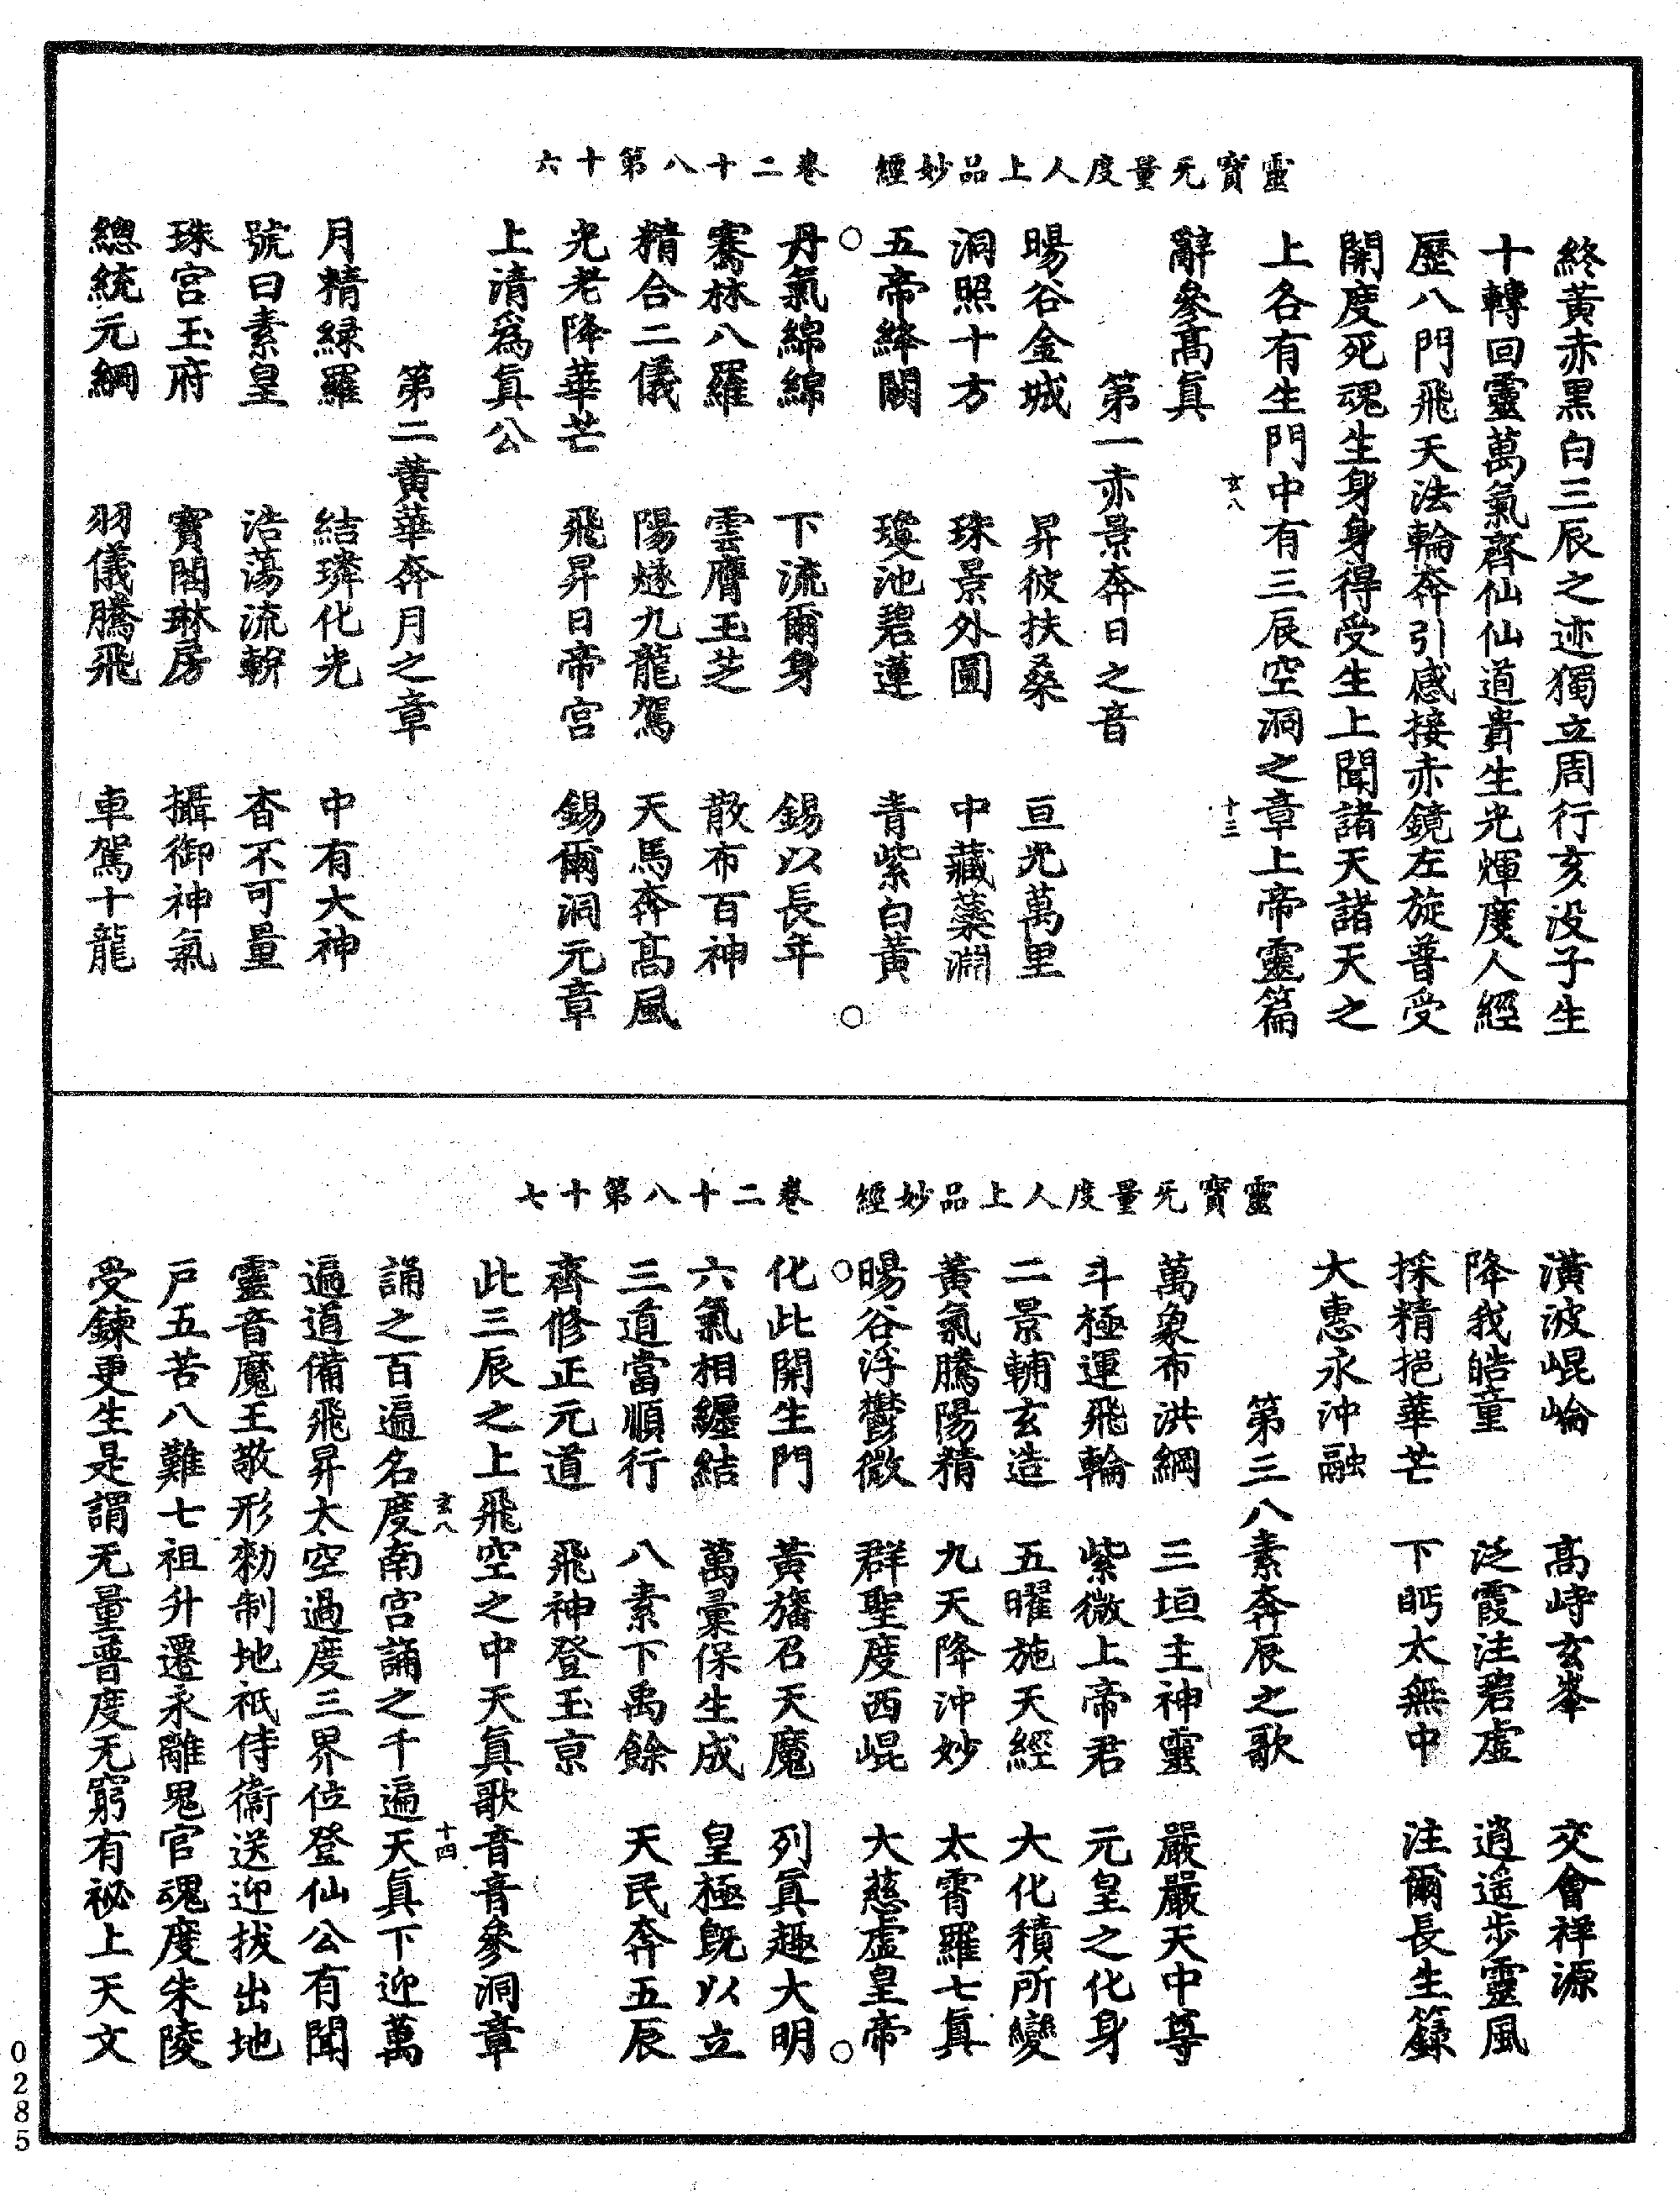 靈寶无量度人上品妙經　卷二十八第十六
終黃赤黑白三辰之迹獨立周行亥没子生
十轉回靈萬氣齊仙仙道貴生光煇度人經
歷八門飛天法輪奔引感接赤鏡左旋普受
開度死魂生身身得受生上聞諸天諸天之
上各有生門中有三辰空洞之章上帝靈篇
玄八　十三
辭參髙真
第一赤景奔日之音
暘谷金城　昇彼扶桑　亘光萬里
洞照十方　珠景外圓　中藏蘂淵
五帝絳闕　瓊池碧蓮　青紫白黃
丹氣綿綿　下流爾身　錫以長年
騫林八羅　雲膺玉芝　散布百神
精合二儀　陽燧九龍駕　天馬奔髙風
光老降華芒　飛昇日帝宮　錫爾洞元章
上清爲真公
第二黃華奔月之章
月精緑羅　結璘化光　中有大神
號曰素皇　浩蕩流軿　杳不可量
珠宮玉府　寶閣琳房　攝御神氣
總統元綱　羽儀騰飛　車駕十龍
靈寶无量度人上品妙經　卷二十八第十七
潢波崐崘　髙峙玄峯　交會祥源
降我皓童　泛霞注碧虛　逍遥步靈風
採精挹華芒　下眄太無中　注爾長生籙
大惠永沖融
第三八素奔辰之歌
萬象布洪綱　三垣主神靈　嚴嚴天中尊
斗極運飛輪　紫微上帝君　元皇之化身
二景輔玄造　五曜施天經　大化積所變
黃氣騰陽精　九天降沖妙　太霄羅七真
暘谷浮鬱微　群聖度西崐　大慈虛皇帝
化此開生門　黃旛召天魔　列真趣大明
六氣相纒結　萬彙保生成　皇極旣以立
三道當順行　八素下禹餘　天民奔五辰
齊修正元道　飛神登玉京
此三辰之上飛空之中天真歌音音參洞章
玄八　十四
誦之百遍名度南宮誦之千遍天真下迎萬
遍道備飛昇太空過度三界位登仙公有聞
靈音魔王敬形勑制地祇侍衛送迎拔出地
戶五苦八難七祖升遷永離鬼官魂度朱陵
受鍊更生是謂无量普度无窮有祕上天文
0285